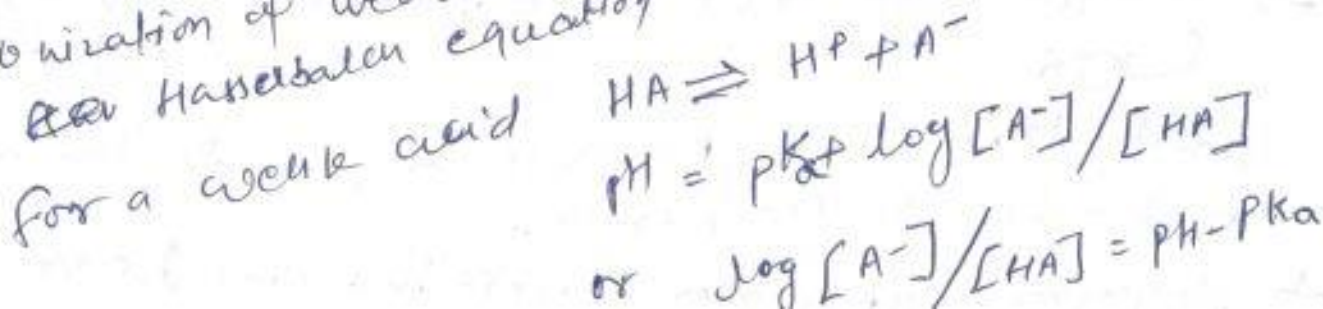 onization of
Hasselbalch equation
for a weak acid HA ⇌ H⁺ + A⁻
pH = pKa + log [A⁻]/[HA]
or log [A⁻]/[HA] = pH - PKa